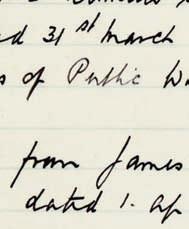 d 31st March
s of Public Wo
from James
dated 1. Ap